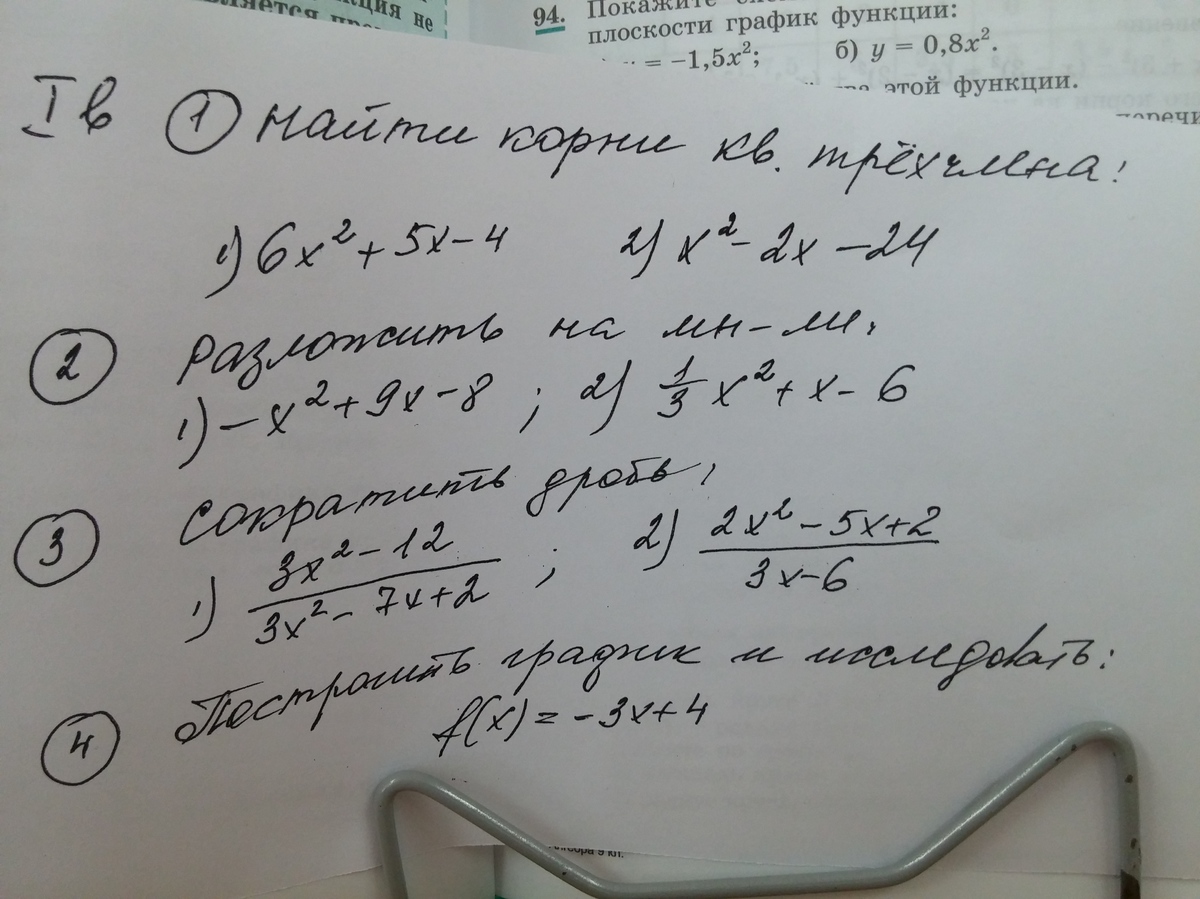 кция не
94. Покажите
плоскости график функции:
= −1,5x²; б) y = 0,8x².
этой функции.
I в ① Найти корни кв. трёхчлена:
1) 6x² + 5x − 4 2) x² − 2x − 24
② Разложить на мн-ли.
1) −x² + 9x − 8 ; 2) 1/3 x² + x − 6
③ Сократить дробь,
1) (3x² − 12)/(3x² − 7x + 2) ; 2) (2x² − 5x + 2)/(3x − 6)
④ Построить график и исследовать:
f(x) = −3x + 4
9 кл.